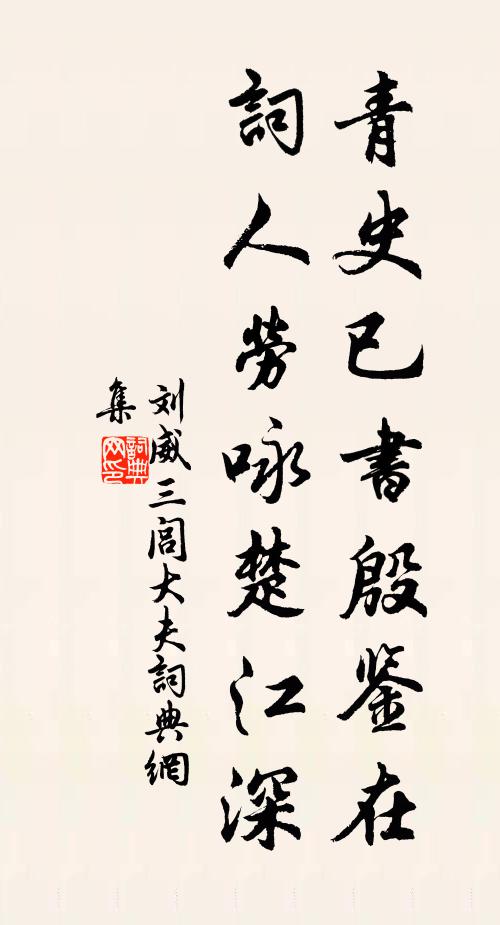 青史已書殷鉴在
詞人勞咏楚江深
刘威三闾大夫詞典網
集
詞典网印